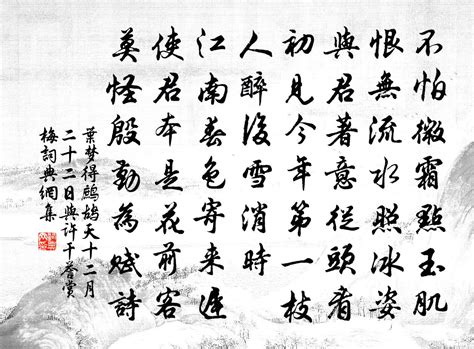 不怕微霜點玉肌
恨無流水照冰姿
與君著意從頭看
初見今年第一枝
人醉後雪消時
江南春色寄來遲
使君本是花前客
莫怪殷勤為賦詩
葉夢得鷓鴣天十二月
二十二日與許干譽賞
梅詞典網集